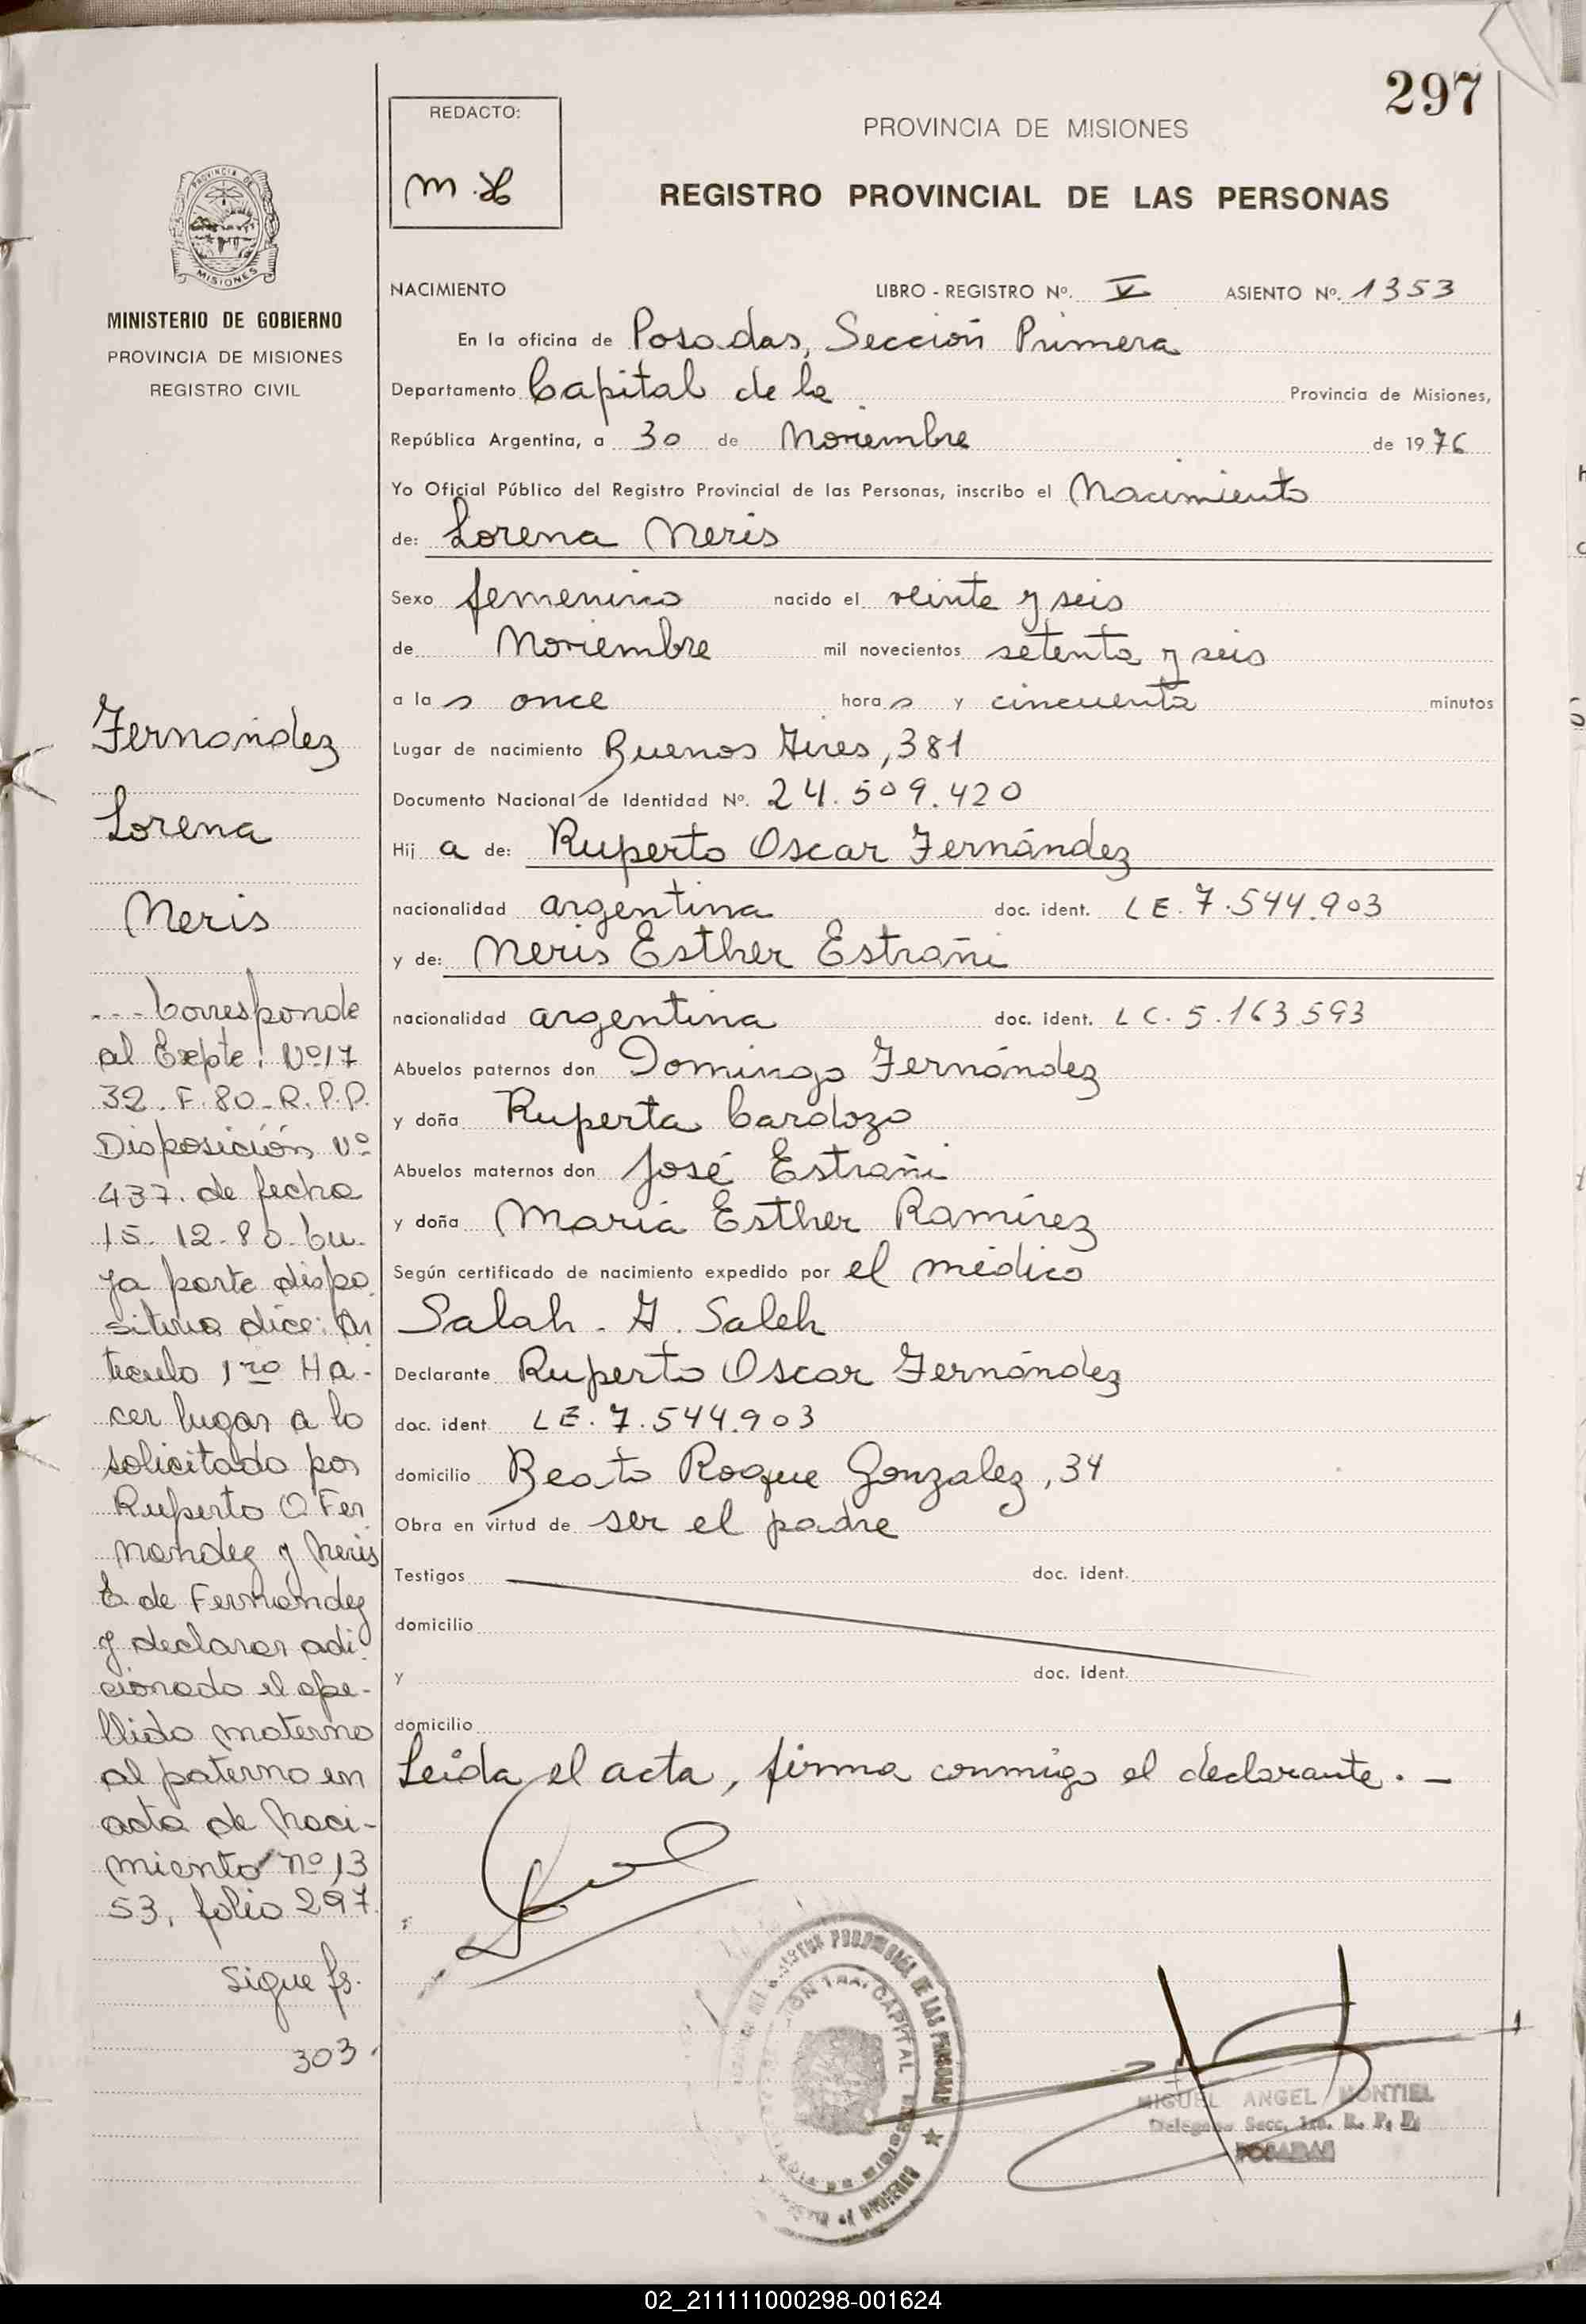 297
REDACTO:
PROVINCIA DE MISIONES
REGISTRO PROVINCIAL DE LAS PERSONAS
PROVINCIA DE
MISIONES
MINISTERIO DE GOBIERNO
PROVINCIA DE MISIONES
REGISTRO CIVIL
NACIMIENTO LIBRO - REGISTRO Nº. V ASIENTO Nº. 1353
En la oficina de Posadas, Sección Primera
Departamento Capital de la Provincia de Misiones,
República Argentina, a 30 de Noviembre de 1976
Yo Oficial Público del Registro Provincial de las Personas, inscribo el Nacimiento
de: Lorena Neris
Sexo femenino nacido el veinte y seis
de Noviembre mil novecientos setenta y seis
a las once horas y cincuenta minutos
Lugar de nacimiento Buenos Aires, 381
Documento Nacional de Identidad Nº. 24.509.420
Hij a de: Ruperto Oscar Fernández
nacionalidad argentina doc. ident. LE. 7.544.903
y de: Neris Esther Estrañi
nacionalidad argentina doc. ident. LC. 5.163.593
Abuelos paternos don Domingo Fernández
y doña Ruperta Cardozo
Abuelos maternos don José Estrañi
y doña María Esther Ramírez
Según certificado de nacimiento expedido por el médico
Salah. A. Saleh
Declarante Ruperto Oscar Fernández
doc. ident. LE. 7.544.903
domicilio Beato Roque Gonzalez, 34
Obra en virtud de ser el padre
Testigos doc. ident.
domicilio
y doc. ident.
domicilio
Leída el acta, firma conmigo el declarante. -
Fernández
Lorena
Neris
--- Corresponde
al Expte: Nº 17
32. F. 80 - R.P.P.
Disposición Nº
437. de fecha
15-12-80. Cu-
ya parte dispo
sitiva dice: Ar
tículo 1ro Ha-
cer lugar a lo
solicitado por
Ruperto O Fer
nandez y Neris
E de Fernandez
y declarar adi
cionado el ape-
llido materno
al paterno en
acta de Naci-
miento nº 13
53, folio 297
sigue fs.
303.
CAPITAL
MIGUEL ANGEL MONTIEL
Delegado Secc. 1ra. R. P. P.
POSADAS
02_211111000298-001624